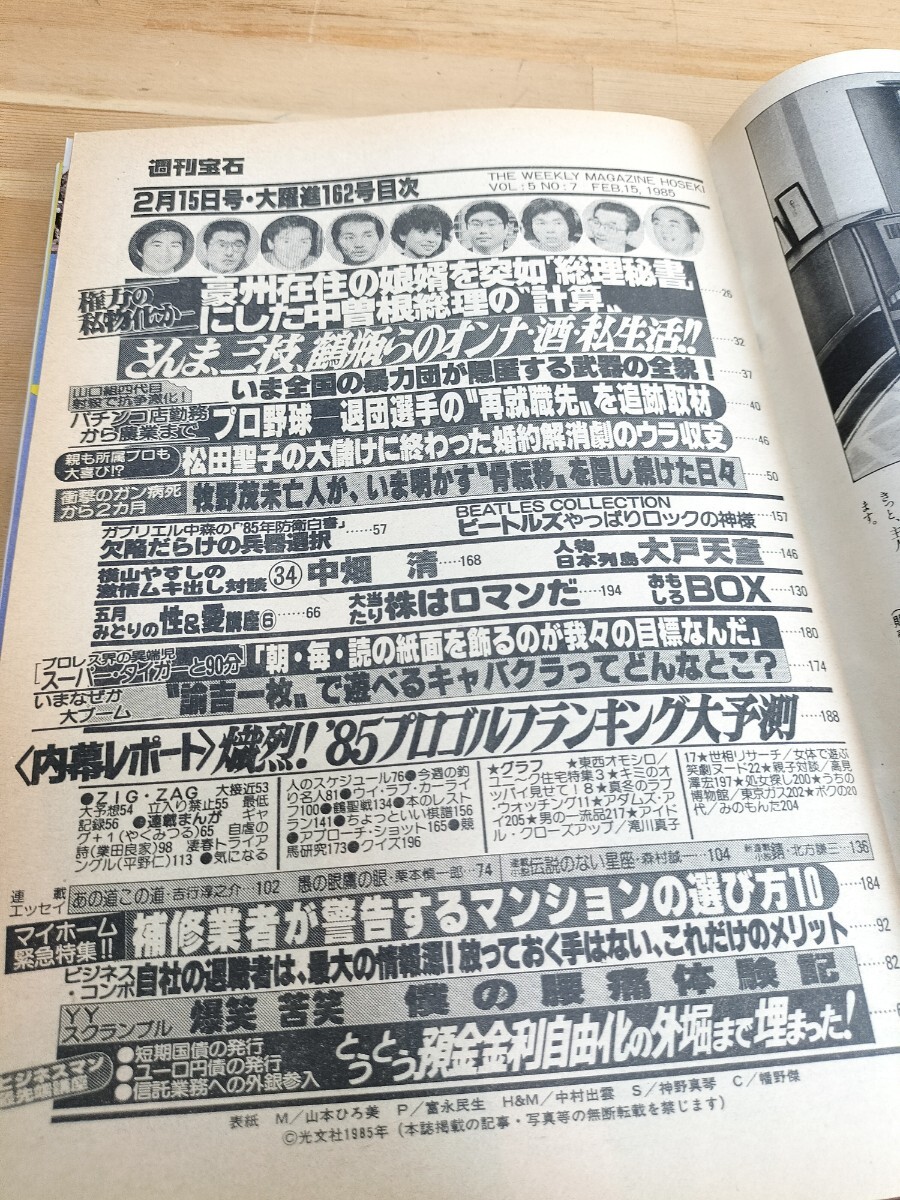 週刊宝石
THE WEEKLY MAGAZINE HOSEKI
VOL:5 NO:7 FEB.15, 1985
2月15日号・大躍進162号目次
権力の私物化か
豪州在住の娘婿を突如“総理秘書”
にした中曽根総理の“計算”……26
さんま、三枝、鶴瓶らのオンナ・酒・私生活!!……32
山口組四代目
射殺で抗争激化!
いま全国の暴力団が隠匿する武器の全貌!……37
パチンコ店勤務
から農業まで
プロ野球 退団選手の“再就職先”を追跡取材……40
親も所属プロも
大喜び!?
松田聖子の大儲けに終わった婚約解消劇のウラ収支……46
衝撃のガン病死
から2カ月
牧野茂未亡人が、いま明かす“骨転移”を隠し続けた日々……50
ガブリエル中森の「'85年防衛白書」
欠陥だらけの兵器選択……57
BEATLES COLLECTION
ビートルズやっぱりロックの神様……157
横山やすしの
激情ムキ出し対談34 中畑 清……168
人物
日本列島 大戸天童……146
五月
みどりの性&愛講座⑥……66
大当
たり 株はロマンだ……194
おも
しろ BOX……130
プロレス界の異端児
スーパー・タイガーと90分
「朝・毎・読の紙面を飾るのが我々の目標なんだ」……180
いまなぜか
大ブーム
“諭吉一枚”で遊べるキャバクラってどんなとこ?……174
〈内幕レポート〉熾烈!'85プロゴルフランキング大予測……188
●ZIG・ZAG 大接近53
大予想54 立入り禁止55 最低
記録56 ●連載まんが ギャ
グ+1(やくみつる)65 自虐の
詩(業田良家)98 凌春トライア
ングル(平野仁)113 ●気になる
人のスケジュール76●今週の釣
り名人81●ウイ・ラブ・カーライ
フ100●鶴聖戦134●本のレスト
ラン141●ちょっといい棋譜156
●アプローチ・ショット165●競
馬研究173●クイズ196
★グラフ ★東西オモシロ/
ユニーク住宅特集3★キミのオ
ッパイ見せて!8★真冬のラブ
・ウォッチング11★アダムズ・ア
イ205★男の一流品217★アイド
ル・クローズアップ/滝川真子
17★世相リサーチ/女体で遊ぶ
笑劇ヌード22★親子対談/鳳見
澤宏197★処女探し200★うちの
博物館/東京ガス202★ボクの20
代/みのもんた204
連載
エッセイ
あの道この道・吉行淳之介…102
愚の眼鷹の眼・栗本慎一郎…74
連載小説 伝説のない星座・森村誠一……104
新連載小説 錆・北方謙三……136
マイホーム
緊急特集!!
補修業者が警告するマンションの選び方10……184
ビジネス
・コンポ
自社の退職者は、最大の情報源!放っておく手はない、これだけのメリット……92
YY
スクランブル
爆笑 苦笑 僕の腰痛体験記……82
ビジネスマン
●短期国債の発行
●ユーロ円債の発行
●信託業務への外銀参入
とうとう預金金利自由化の外堀まで埋まった!
表紙 M/山本ひろ美 P/富永民生 H&M/中村出雲 S/神野真琴 C/幡野傑
©光文社1985年(本誌掲載の記事・写真等の無断転載を禁じます)
きっと、
ます。